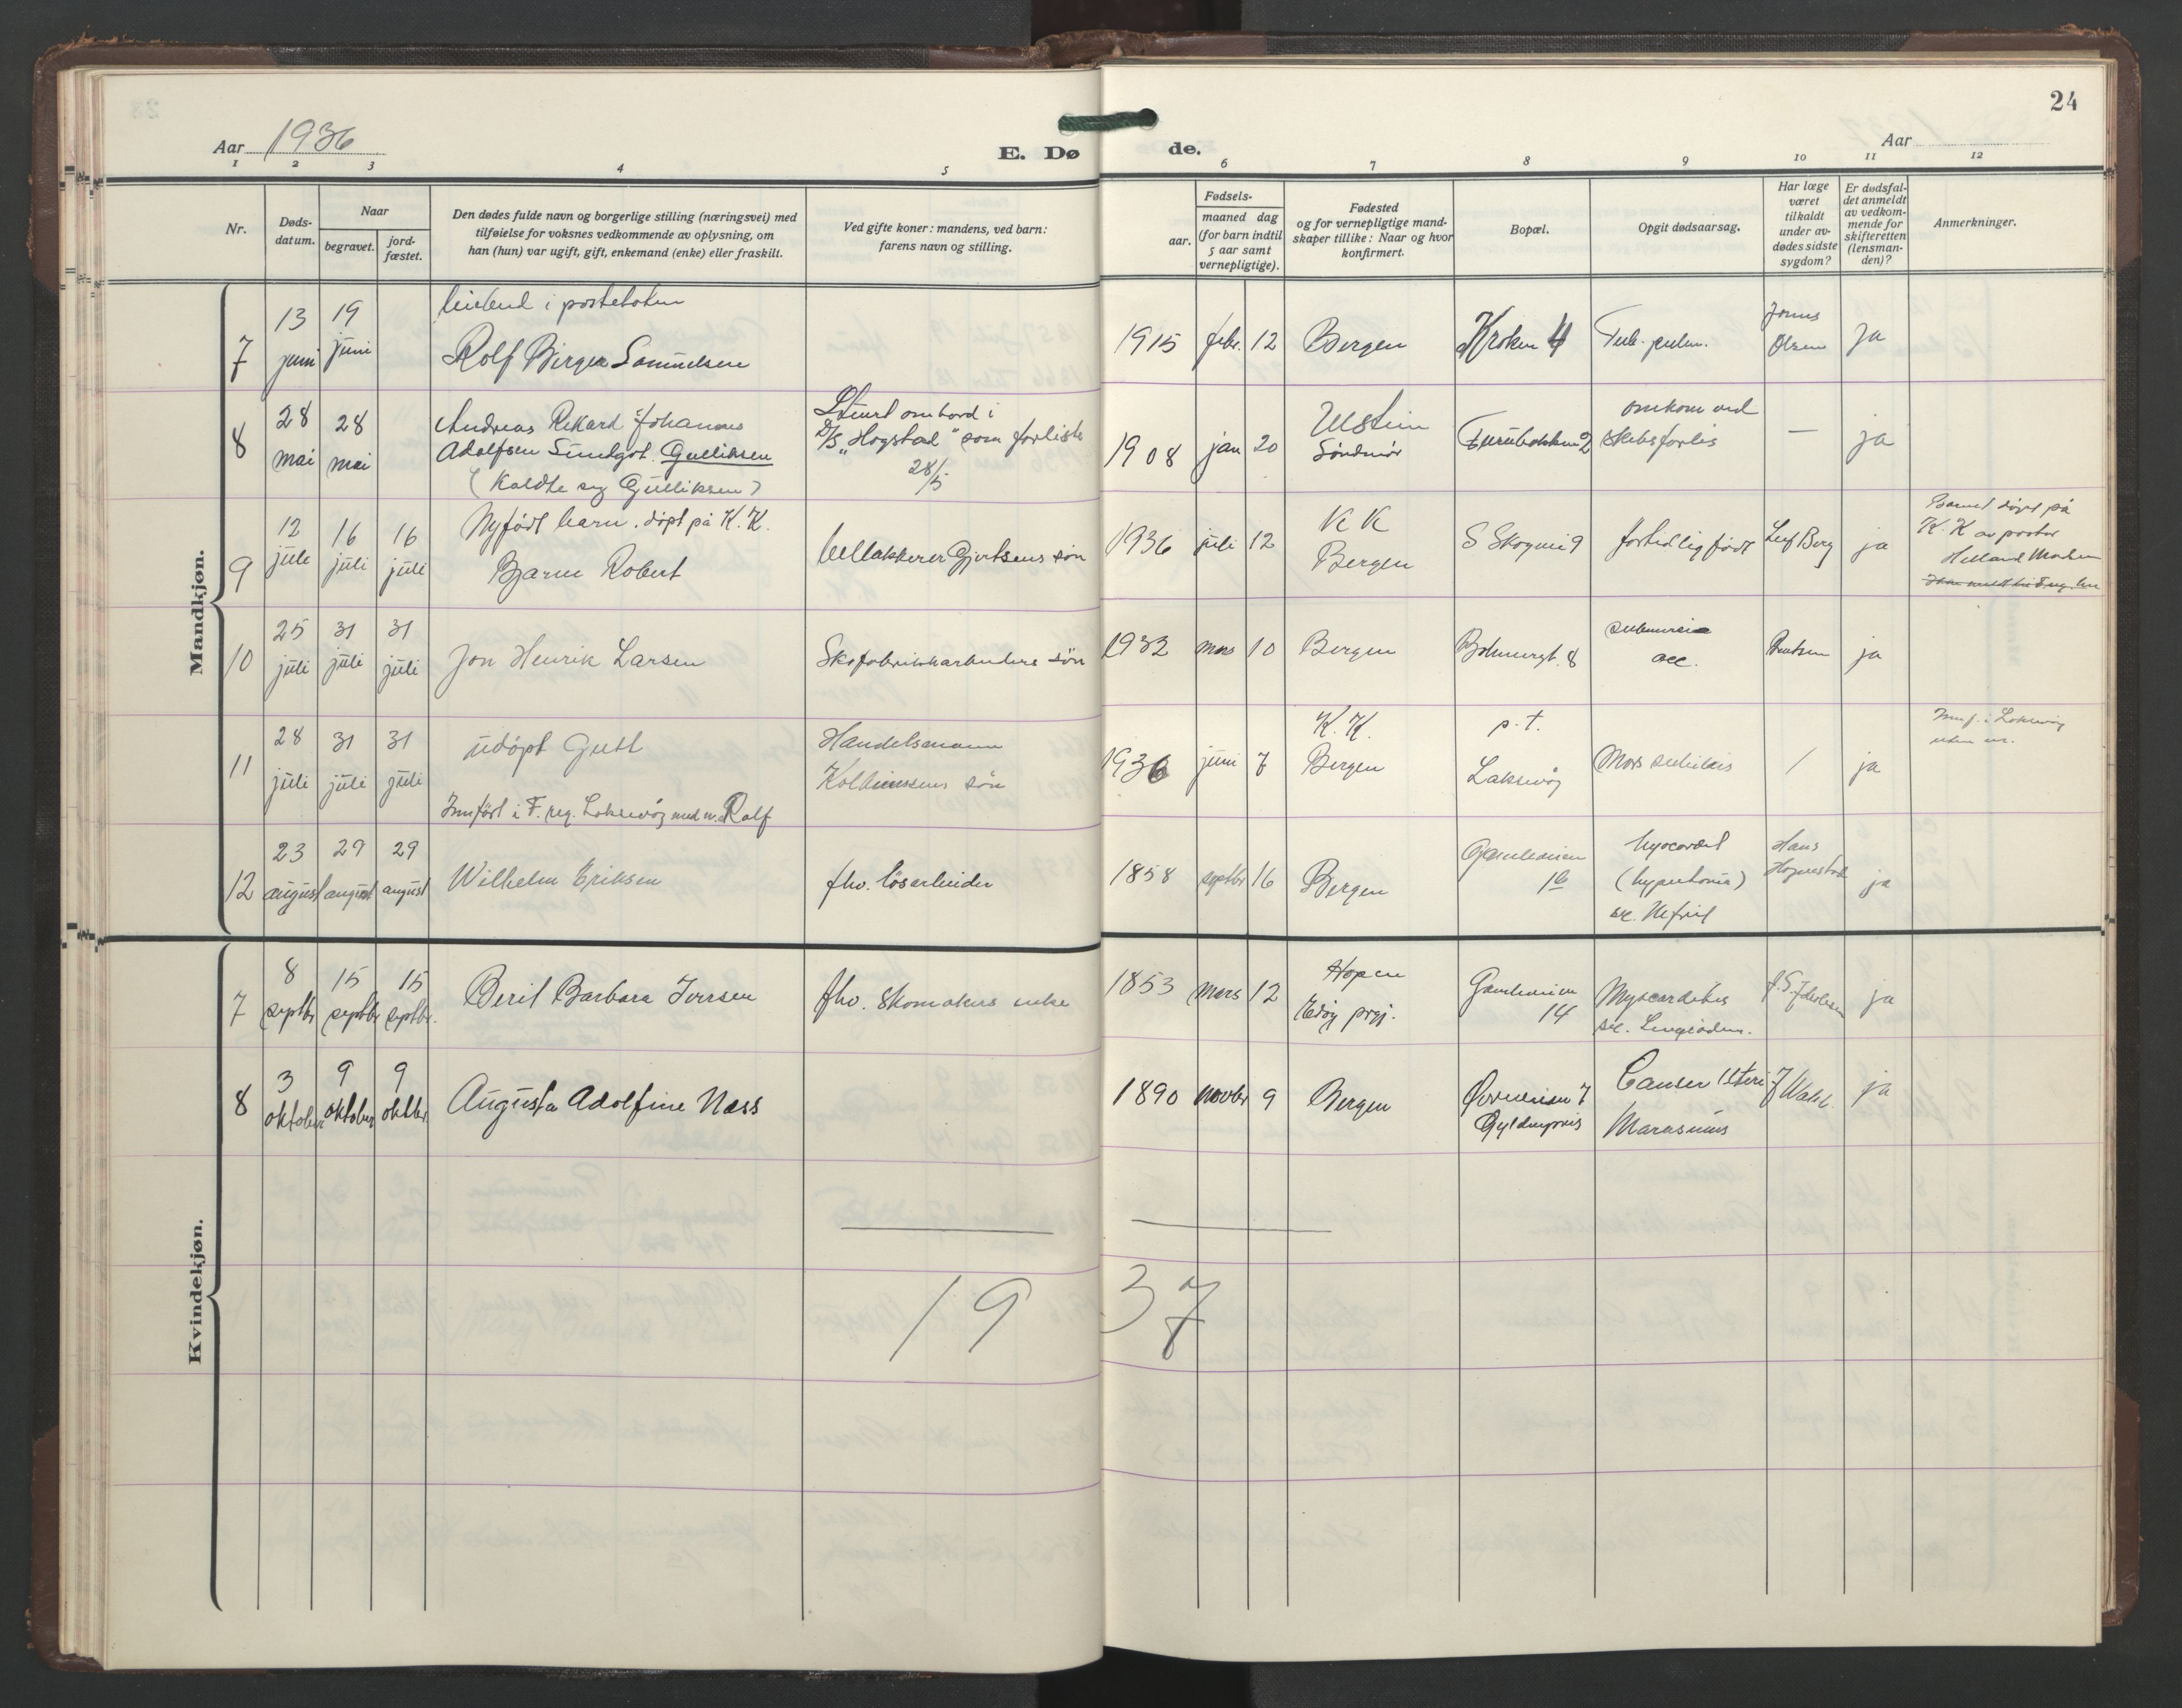 24
Aar 1936
E. Dø
de.
Aar
1 2 3 4 5 6 7 8 9 10 11 12
Nr.
Døds-
datum.
Naar
begravet.
jord-
fæstet.
Den dødes fulde navn og borgerlige stilling (næringsvei) med
tilføielse for voksnes vedkommende av oplysning, om
han (hun) var ugift, gift, enkemand (enke) eller fraskilt.
Ved gifte koner: mandens, ved barn:
farens navn og stilling.
Fødsels-
aar.
maaned dag
(for barn indtil
5 aar samt
vernepligtige).
Fødested
og for vernepligtige mand-
skaper tillike: Naar og hvor
konfirmert.
Bopæl.
Opgit dødsaarsag.
Har læge
været
tilkaldt
under av-
dødes sidste
sygdom?
Er dødsfal-
det anmeldt
av vedkom-
mende for
skifteretten
(lensman-
den)?
Anmerkninger.
Mandkjøn.
7
13 juni
19 juni
i
Rolf Birger Samuelsen
1915 febr. 12
Bergen
Kroken 4
Tub. pulm.
Olsen
ja
8
28 mai
28 mai
Andreas Rikard Johannes
Adolfsen Sundgot Gulliksen
(Kaldte seg Gulliksen)
Stuert ombord i
D/S "Hogstad" som forliste
28/5
1908 jan 20
Ulstein
Söndmör
Furubakken 2
omkom ved
skibsforlis
—
ja
9
12 juli
16 juli
16 juli
Nyfödt barn. döpt på K.K.
Bjarne Robert
Gjertsens sön
1936 juli 12
K K
Bergen
S Skogvei 9
for tidlig födt
Leif Berg
ja
Barnet döpt på
K.K av pastor
Helland
10
25 juli
31 juli
31 juli
Jon Henrik Larsen
Skofabrikkarbeiders sön
1932 mars 10
Bergen
8
acc.
Knudsen
ja
11
28 juli
31 juli
31 juli
udöpt Gutt
Innfört i F. reg. Laksevåg med n. Rolf
Handelsmann
sön
1936 juni 7
K.K.
Bergen
p.t.
Laksevåg
Mors subitus
/
ja
Innf. i Laksevåg
uten nr.
12
23 august
29 august
29 august
Wilhelm Eriksen
fhv. lösarbeider
1858 septbr 16
Bergen
1b
Myocard
(hypertonia)
Hans
ja
Kvindekjøn.
7
8 septbr
15 septbr
15 septbr.
Berit Barbara Iversen
fhv. Skomakers enke
1853 mars 12
Hopen
Edöy prgj.
14
Myocarditis
ja
8
3 oktober
9 oktober
9 oktbr.
Augusta Adolfine Næss
1890 novbr 9
Bergen
7
Gyldenpris
Cancer Uteri
Marasmus
J Wahl
ja
19 37